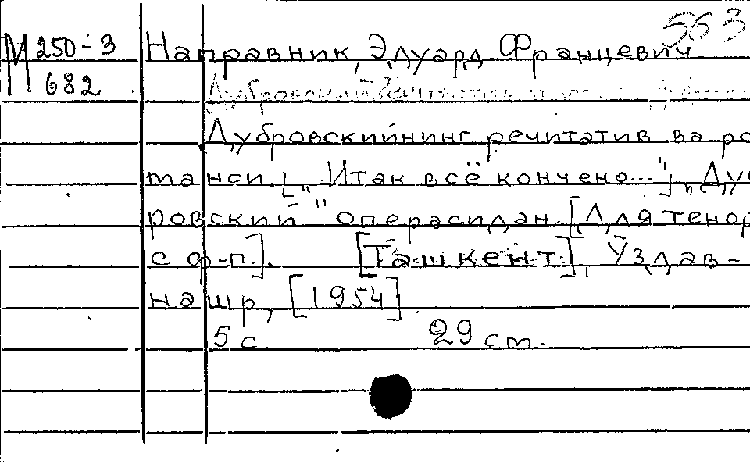 553
М 250-3 Направник, Эдуард Францевич
682
Дубровскийнинг речитатив ва ро
танси. [„Итак всё кончено..."], „Дуб
ровский" операсидан. [Для тенор
с ф-п]. [Ташкент], Ўздав-
нашр, [1954]
5 с. 29 см.